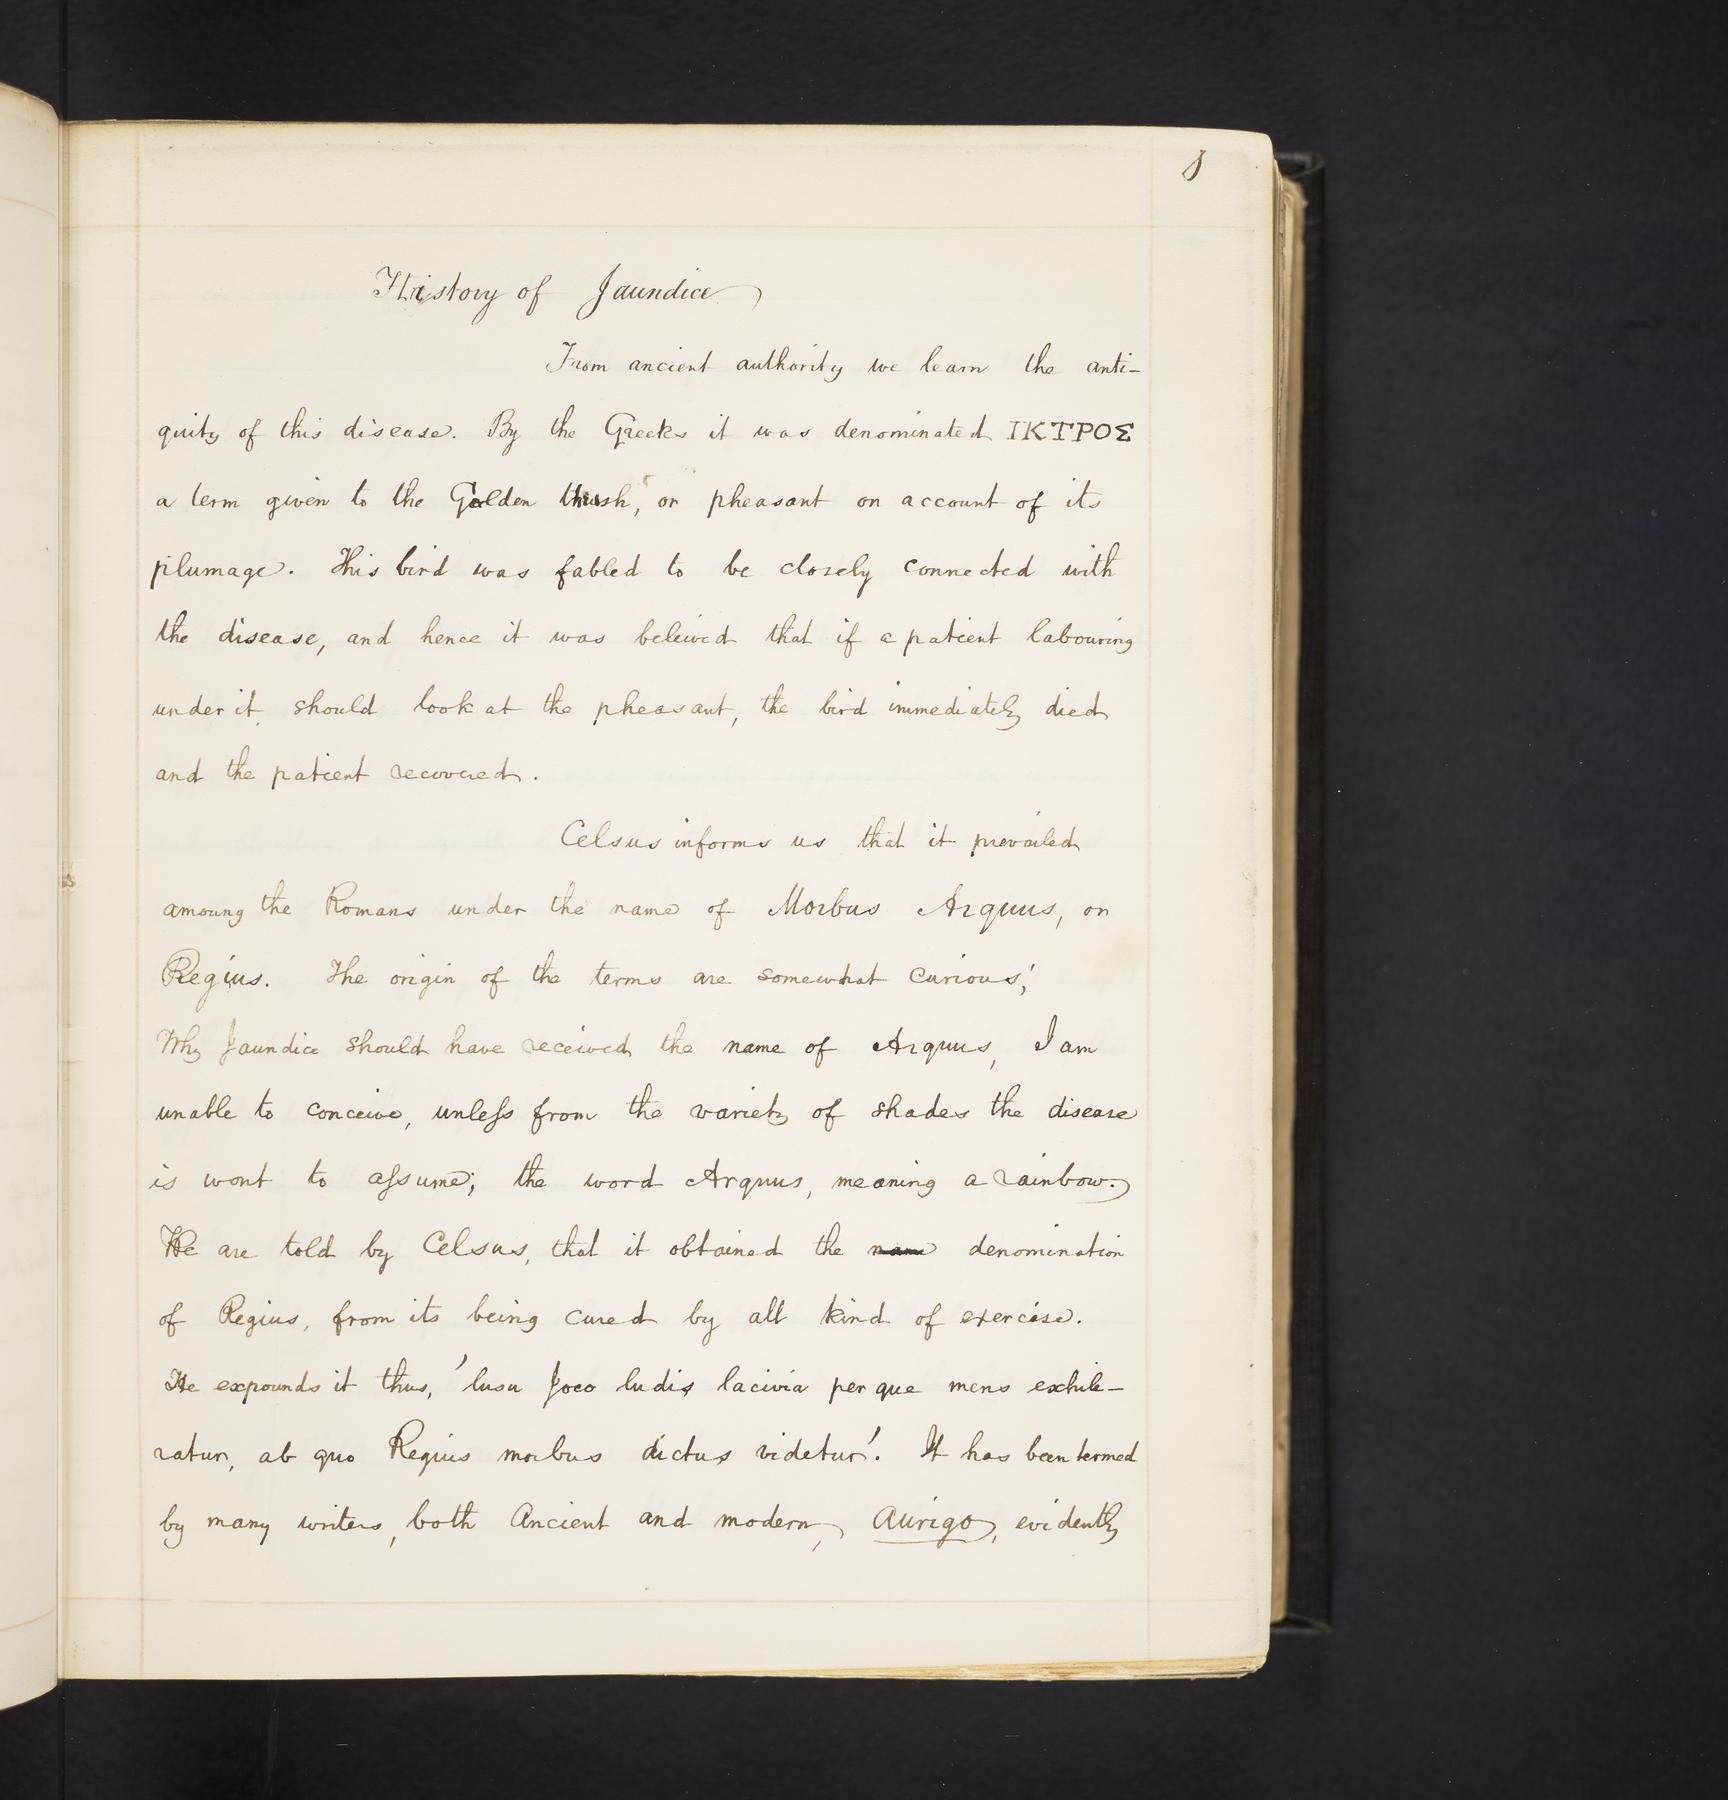 History of Jaundice
From ancient authority we learn the anti-
quity of this disease. By the Greeks it was denominated ΙΚΤΡΟΣ
a term given to the Golden thrush, or pheasant on account of its
plumage. This bird was fabled to be closely connected with
the disease, and hence it was beleived that if a patient labouring
under it should look at the pheasant, the bird immediately died
and the patient recovered.
Celsus informs us that it prevailed
amoung the Romans under the name of Morbus Arquus, or
Regius. The origin of the terms are somewhat curious;
Why Jaundice should have received the name of Arquus, I am
unable to conceive, unless from the variety of shades the disease
is wont to assume; the word Arquus, meaning a rainbow.
We are told by Celsus, that it obtained the name denomination
of Regius, from its being cured by all kind of exercise.
He expounds it thus, 'lusu Joco ludis lacivia per que mens exhile-
ratur, ab quo Regius morbus dictus videtur'. It has been termed
by many writers, both Ancient and modern, Aurigo, evidently